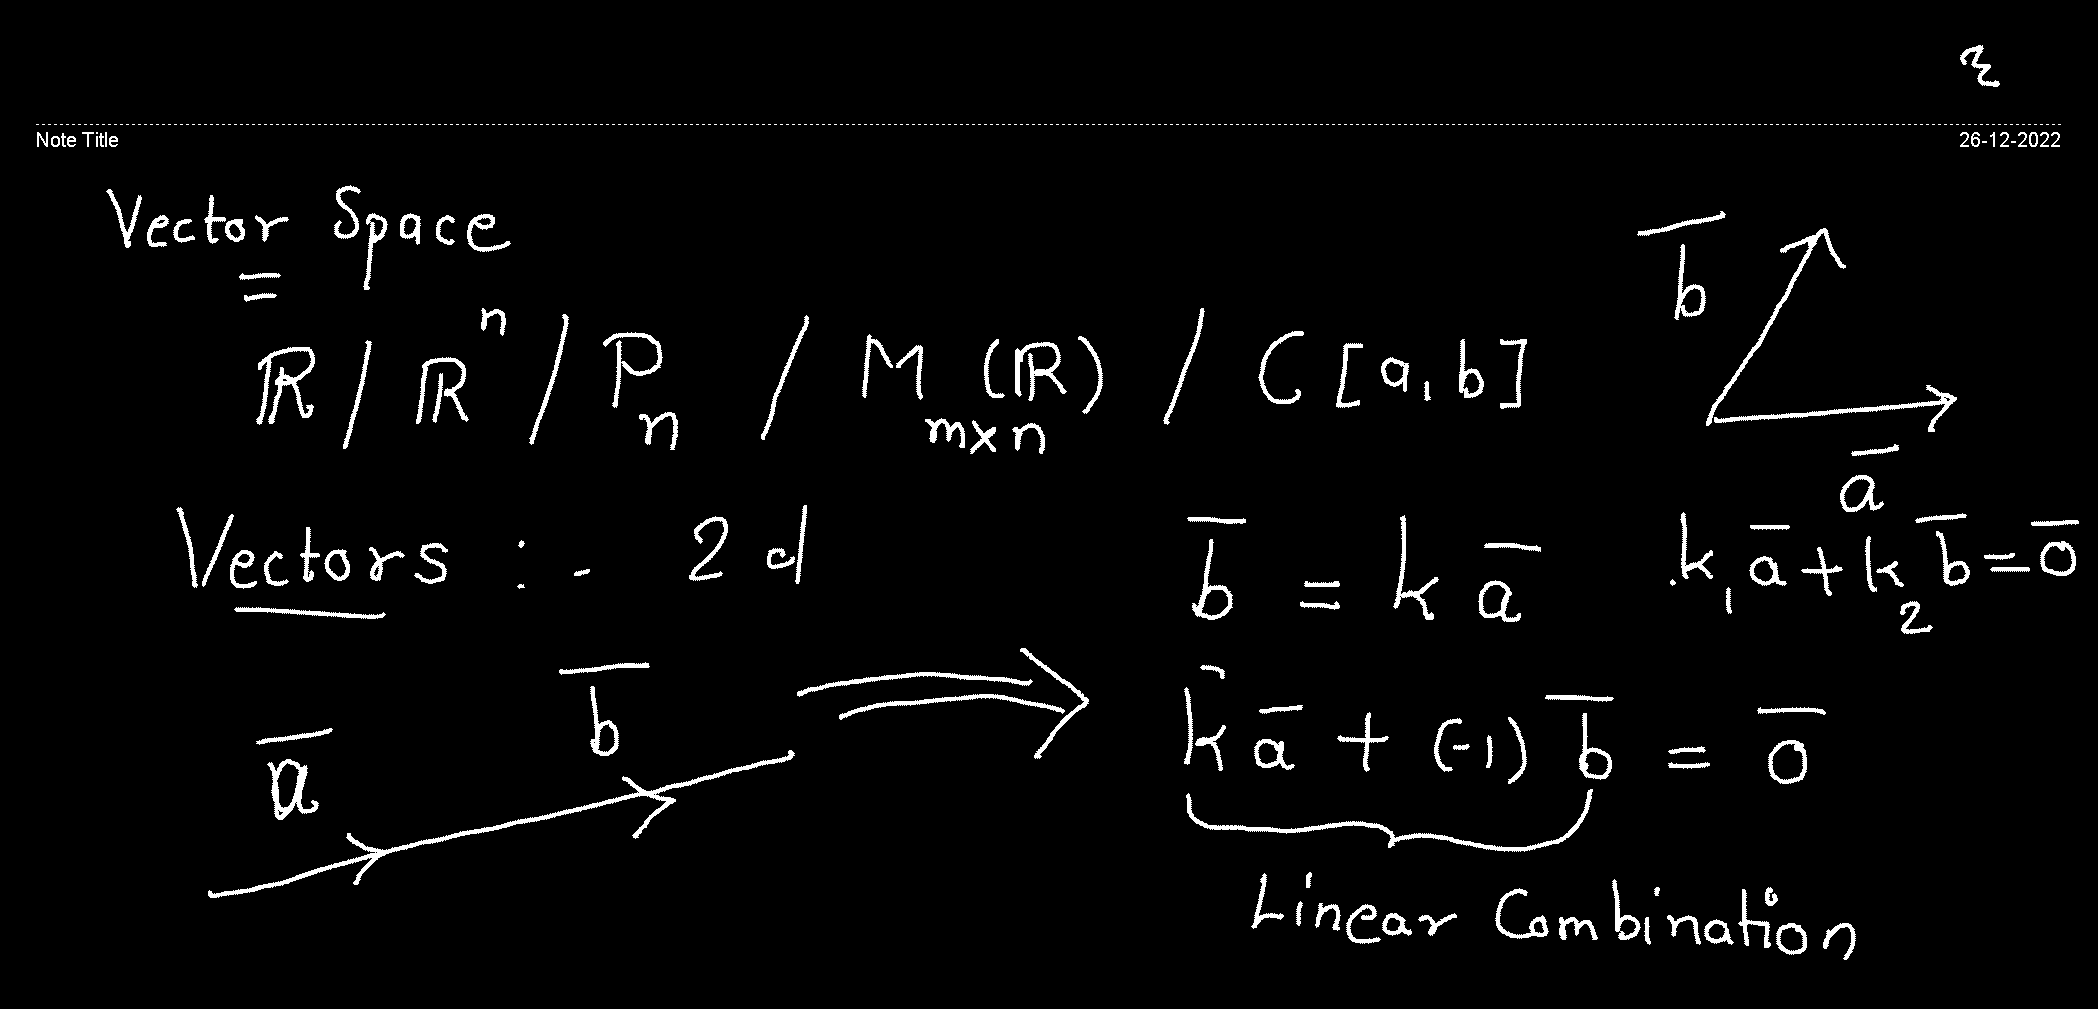 Note Title
26-12-2022
Vector Space
ℝ / ℝⁿ / Pₙ / M_{m×n}(ℝ) / C[a,b]
b̅
a̅
Vectors :- 2d
b̅ = k a̅
k₁a̅ + k₂b̅ = 0̅
a̅
b̅
k a̅ + (-1) b̅ = 0̅
Linear Combination